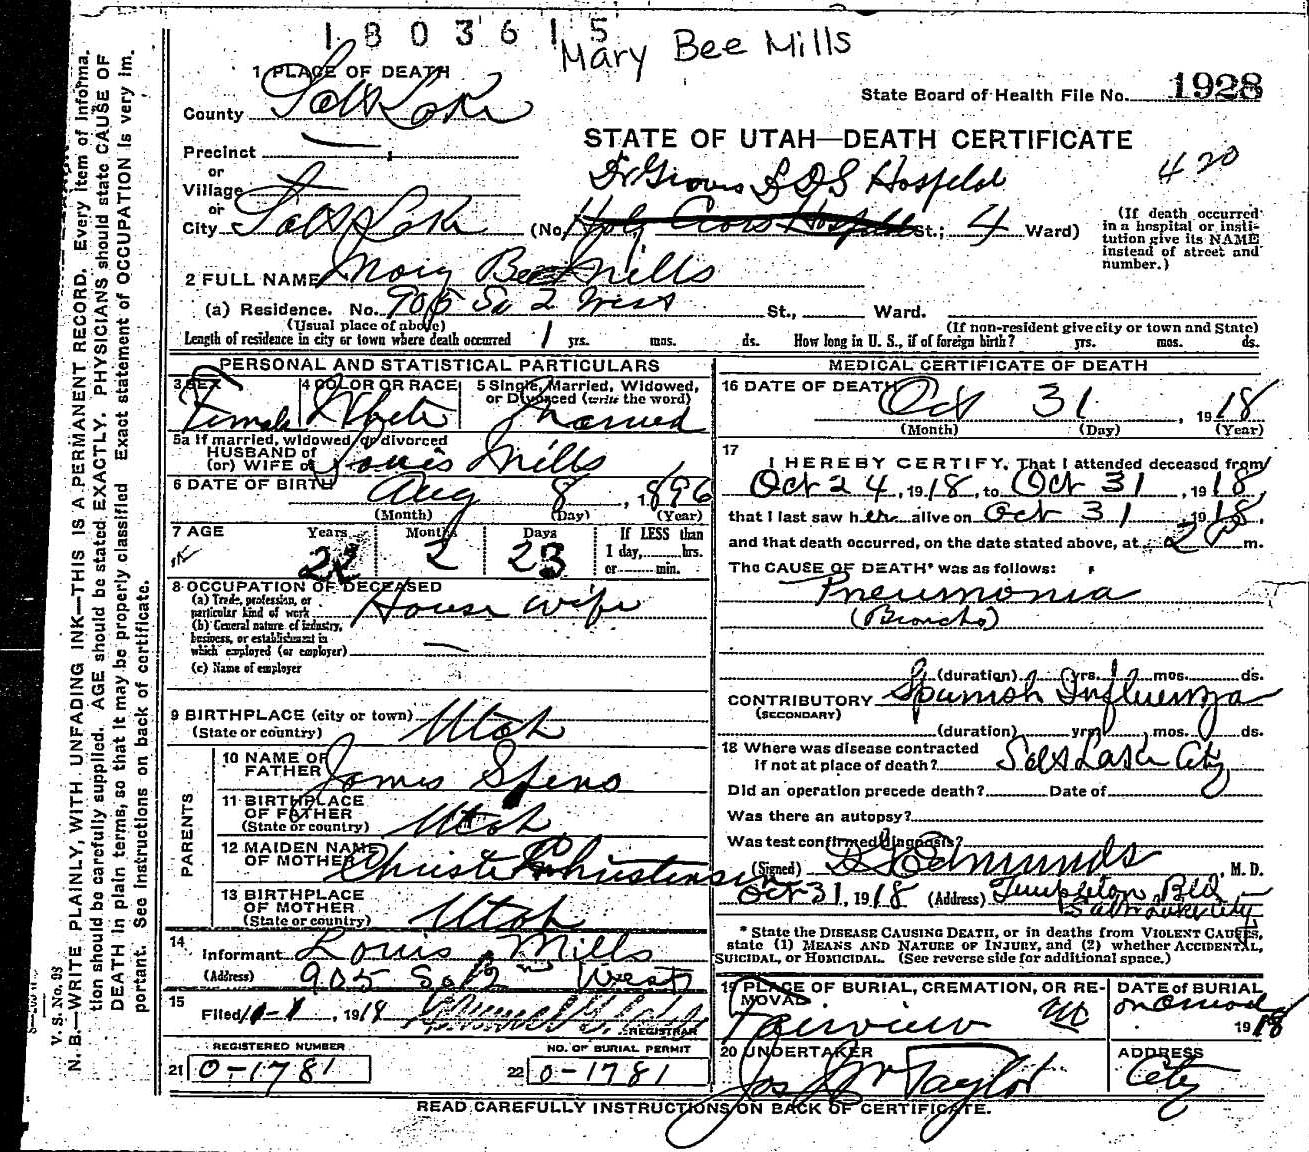 1803615
Mary Bee Mills
1 PLACE OF DEATH
County Salt Lake
State Board of Health File No. 1928
STATE OF UTAH—DEATH CERTIFICATE
420
Precinct
or
Village
or
Dr Groves L D S Hospital
City Salt Lake (No. Holy Cross Hospital St.; 4 Ward)
(If death occurred in a hospital or institution give its NAME instead of street and number.)
2 FULL NAME Mary Bee Mills
(a) Residence. No. 905 So 2 West St., Ward.
(Usual place of above) (If non-resident give city or town and State)
Length of residence in city or town where death occurred 1 yrs. mos. ds. How long in U. S., if of foreign birth? yrs. mos. ds.
PERSONAL AND STATISTICAL PARTICULARS
3 SEX
Female
4 COLOR OR RACE
White
5 Single, Married, Widowed, or Divorced (write the word)
Married
5a If married, widowed, or divorced
HUSBAND of
(or) WIFE of Louis Mills
6 DATE OF BIRTH Aug 8, 1896
(Month) (Day) (Year)
7 AGE Years Months Days If LESS than
1 day, hrs.
or min.
22 2 23
8 OCCUPATION OF DECEASED
(a) Trade, profession, or particular kind of work House wife
(b) General nature of industry, business, or establishment in which employed (or employer)
(c) Name of employer
9 BIRTHPLACE (city or town)
(State or country) Utah
PARENTS
10 NAME OF FATHER James
11 BIRTHPLACE OF FATHER
(State or country) Utah
12 MAIDEN NAME OF MOTHER Christensen
13 BIRTHPLACE OF MOTHER
(State or country) Utah
14
Informant Louis Mills
(Address) 905 So 2nd West
15
Filed 11-1, 1918
REGISTRAR
REGISTERED NUMBER
21 0-1781
NO. OF BURIAL PERMIT
22 0-1781
MEDICAL CERTIFICATE OF DEATH
16 DATE OF DEATH Oct 31, 1918
(Month) (Day) (Year)
17
I HEREBY CERTIFY, That I attended deceased from
Oct 24, 1918, to Oct 31, 1918,
that I last saw her alive on Oct 31, 1918,
and that death occurred, on the date stated above, at 2 P m.
The CAUSE OF DEATH* was as follows:
Pneumonia
(Broncho)
(duration) yrs. mos. ds.
CONTRIBUTORY Spanish Influenza
(SECONDARY)
(duration) yrs. mos. ds.
18 Where was disease contracted
If not at place of death? Salt Lake City
Did an operation precede death? Date of
Was there an autopsy?
What test confirmed diagnosis?
(Signed) Edmunds, M. D.
Oct 31, 1918 (Address) Templeton Bld
Salt Lake City
* State the DISEASE CAUSING DEATH, or in deaths from VIOLENT CAUSES,
state (1) MEANS AND NATURE OF INJURY, and (2) whether ACCIDENTAL,
SUICIDAL, or HOMICIDAL. (See reverse side for additional space.)
19 PLACE OF BURIAL, CREMATION, OR REMOVAL
Fairview
DATE of BURIAL
on arrival
1918
20 UNDERTAKER
Jos Wm Taylor
ADDRESS
City
READ CAREFULLY INSTRUCTIONS ON BACK OF CERTIFICATE.
V. S. No. 98
N. B.—WRITE PLAINLY, WITH UNFADING INK—THIS IS A PERMANENT RECORD. Every item of informa-
tion should be carefully supplied. AGE should be stated EXACTLY. PHYSICIANS should state CAUSE OF
DEATH in plain terms, so that it may be properly classified. Exact statement of OCCUPATION is very im-
portant. See instructions on back of certificate.